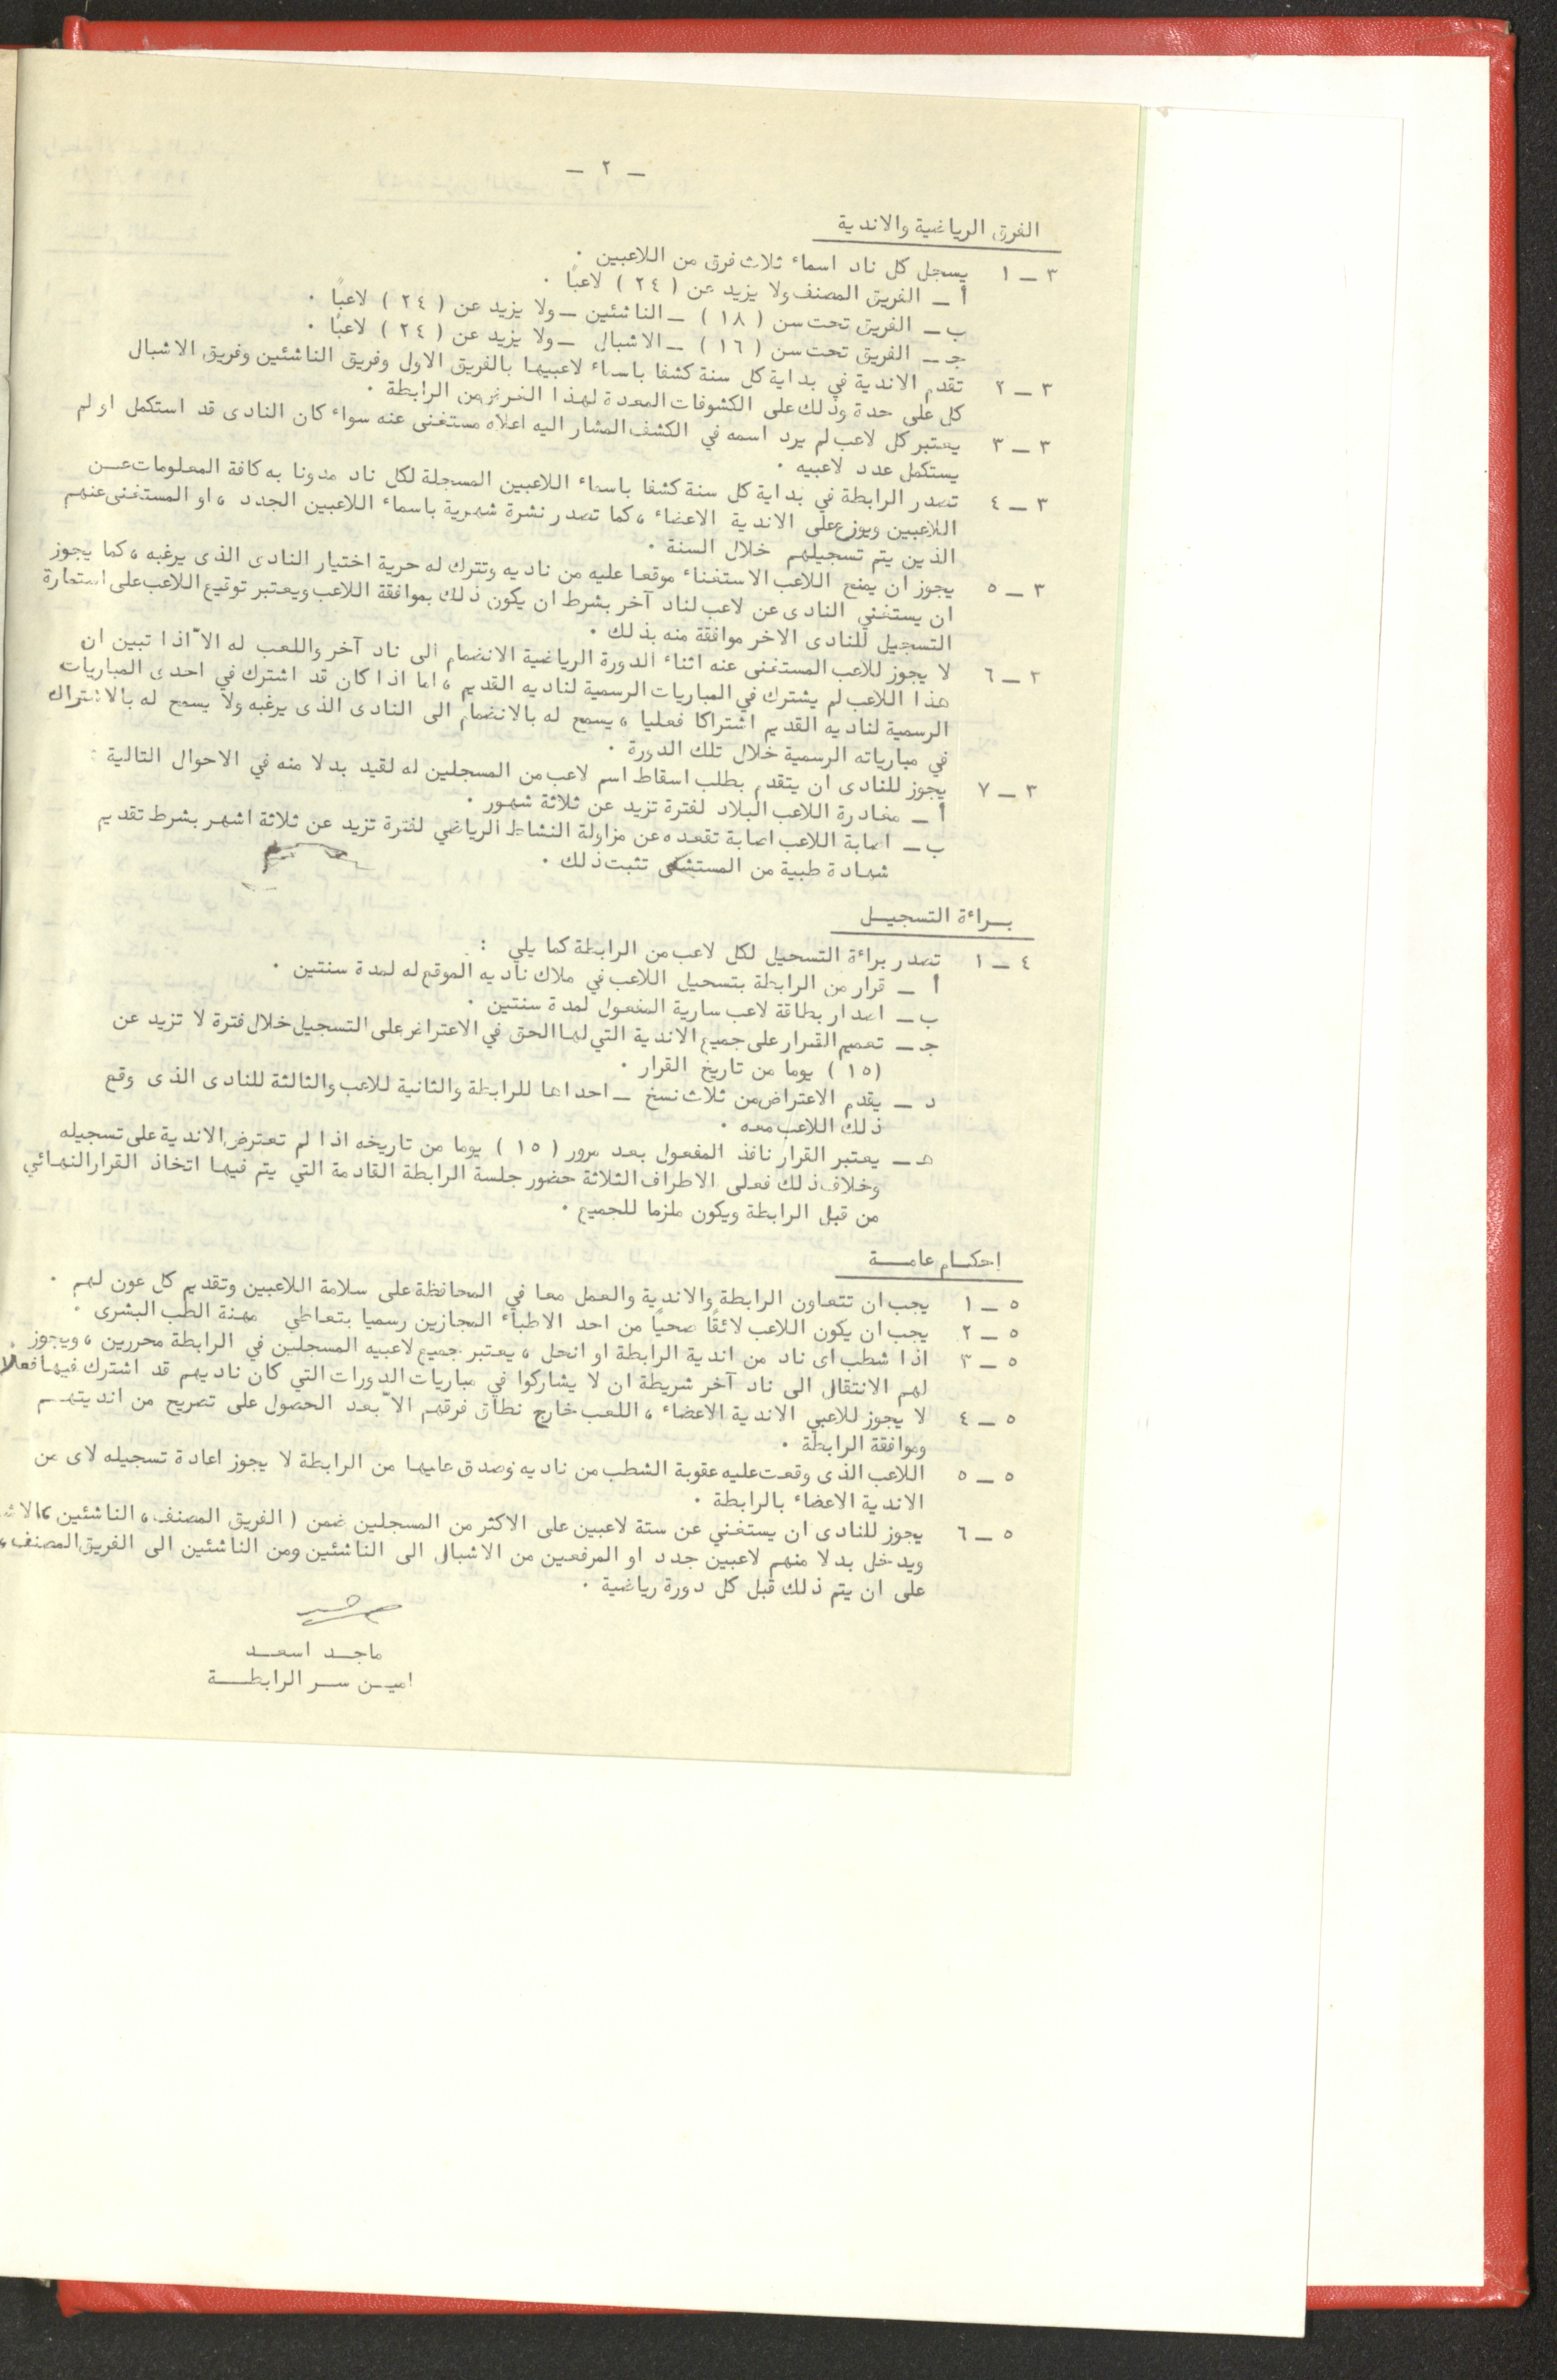 ـ ٢ ـ
الفرق الرياضية والاندية
٣ ـ ١ يسجل كل ناد اسماء ثلاث فرق من اللاعبين .
أ ـ الفريق المصنف ولا يزيد عن ( ٢٤ ) لاعبًا .
ب ـ الفريق تحت سن ( ١٨ ) ـ الناشئين ـ ولا يزيد عن ( ٢٤ ) لاعبًا .
جـ ـ الفريق تحت سن ( ١٦ ) ـ الاشبال ـ ولا يزيد عن ( ٢٤ ) لاعبًا .
٣ ـ ٢ تقدم الاندية في بداية كل سنة كشفا باسماء لاعبيها بالفريق الاول وفريق الناشئين وفريق الاشبال
كل على حدة وذلك على الكشوفات المعدة لهذا الغرض من الرابطة .
٣ ـ ٣ يعتبر كل لاعب لم يرد اسمه في الكشف المشار اليه اعلاه مستغنى عنه سواء كان النادى قد استكمل او لم
يستكمل عدد لاعبيه .
٣ ـ ٤ تصدر الرابطة في بداية كل سنة كشفا باسماء اللاعبين المسجلة لكل ناد مدونا به كافة المعلومات عـن
اللاعبين ويوزع على الاندية الاعضاء ، كما تصدر نشرة شهرية باسماء اللاعبين الجدد ، او المستغنى عنهم
الذين يتم تسجيلهم خلال السنة .
٣ ـ ٥ يجوز ان يمنح اللاعب الاستغناء موقعا عليه من ناديه وتترك له حرية اختيار النادى الذى يرغبه ، كما يجوز
ان يستغني النادى عن لاعب لناد آخر بشرط ان يكون ذلك بموافقة اللاعب ويعتبر توقيع اللاعب على استمارة
التسجيل للنادى الاخر موافقة منه بذلك .
٣ ـ ٦ لا يجوز للاعب المستغنى عنه اثناء الدورة الرياضية الانضمام الى ناد آخر واللعب له الاّ اذا تبين ان
هذا اللاعب لم يشترك في المباريات الرسمية لناديه القديم ، اما اذا كان قد اشترك في احدى المباريات
الرسمية لناديه القديم اشتراكا فعليا ، يسمح له بالانضمام الى النادى الذى يرغبه ولا يسمح له بالاشتراك
في مبارياته الرسمية خلال تلك الدورة .
٣ ـ ٧ يجوز للنادى ان يتقدم بطلب اسقاط اسم لاعب من المسجلين له لقيد بدلا منه في الاحوال التالية :
أ ـ مغادرة اللاعب البلاد لفترة تزيد عن ثلاثة شهور .
ب ـ اصابة اللاعب اصابة تقعده عن مزاولة النشاط الرياضي لفترة تزيد عن ثلاثة اشهر بشرط تقديم
شهادة طبية من المستشفى تثبت ذلك .
بـراءة التسجيـل
٤ ـ ١ تصدر براءة التسحيل لكل لاعب من الرابطة كما يلي :
أ ـ قرار من الرابطة بتسحيل اللاعب في ملاك ناديه الموقع له لمدة سنتين .
ب ـ اصدار بطاقة لاعب سارية المفعول لمدة سنتين .
جـ ـ تعميم القرار على جميع الاندية التي لها الحق في الاعتراض على التسجيل خلال فترة لا تزيد عن
( ١٥ ) يوما من تاريخ القرار .
د ـ يقدم الاعتراض من ثلاث نسخ ـ احداها للرابطة والثانية للاعب والثالثة للنادى الذى وقع
ذلك اللاعب معه .
هـ ـ يعتبر القرار نافذ المفعول بعد مرور ( ١٥ ) يوما من تاريخه اذا لم تعترض الاندية على تسجيله
وخلاف ذلك فعلى الاطراف الثلاثة حضور جلسة الرابطة القادمة التي يتم فيها اتخاذ القرار النهائي
من قبل الرابطة ويكون ملزما للجميع .
احكـام عامــة
٥ ـ ١ يجب ان تتعاون الرابطة والاندية والعمل معا في المحافظة على سلامة اللاعبين وتقديم كل عون لهم .
٥ ـ ٢ يجب ان يكون اللاعب لائقًا صحيًا من احد الاطباء المجازين رسميا بتعاطي مهنة الطب البشرى .
٥ ـ ٣ اذا شطب اى ناد من اندية الرابطة او انحل ، يعتبر جميع لاعبيه المسجلين في الرابطة محررين ، ويجوز
لهم الانتقال الى ناد آخر شريطة ان لا يشاركوا في مباريات الدورات التي كان ناديهم قد اشترك فيها فعلا
٥ ـ ٤ لا يجوز للاعبي الاندية الاعضاء ، اللعب خارج نطاق فرقهم الاّ بعد الحصول على تصريح من انديتهـم
وموافقة الرابطة .
٥ ـ ٥ اللاعب الذى وقعت عليه عقوبة الشطب من ناديه وصدق عليها من الرابطة لا يجوز اعادة تسجيله لاى من
الاندية الاعضاء بالرابطة .
٥ ـ ٦ يجوز للنادى ان يستغني عن ستة لاعبين على الاكثر من المسجلين ضمن ( الفريق المصنف ، الناشئين ،
ويدخل بدلا منهم لاعبين جدد او المرفعين من الاشبال الى الناشئين ومن الناشئين الى الفريق المصنف ،
على ان يتم ذلك قبل كل دورة رياضية .
ماجـد اسعـد
اميـن سـر الرابطــة